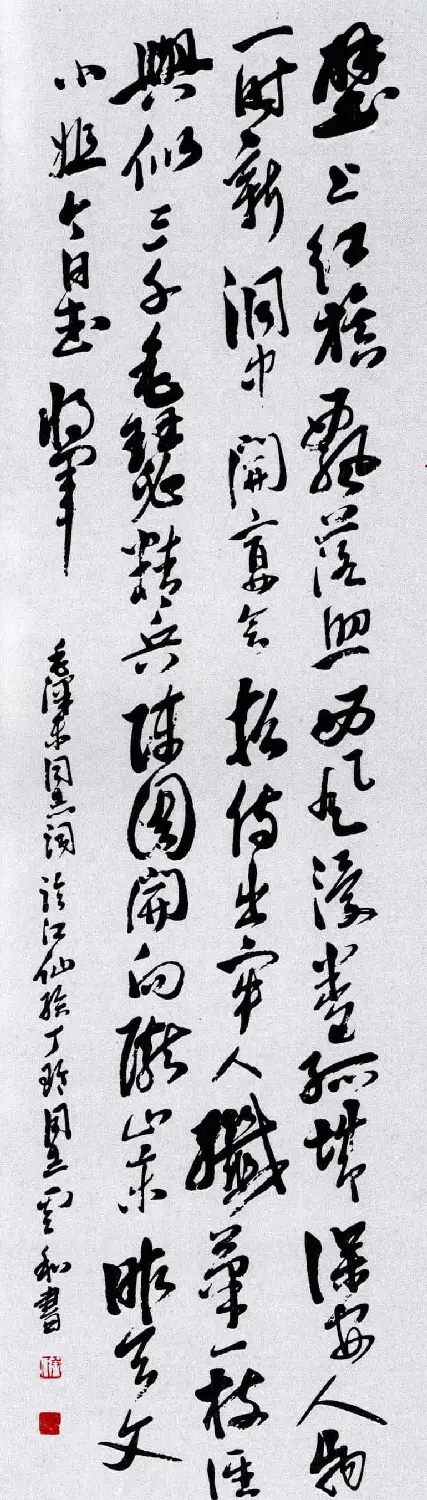 壁上红旗飘落照西风漫卷孤城保安人物
一时新洞中開宴会招待出牢人纖筆一枝谁
與似三千毛瑟精兵陣圖開向隴山東昨天文
小姐今日武将軍
毛澤東同志词临江仙给丁玲同志 和書